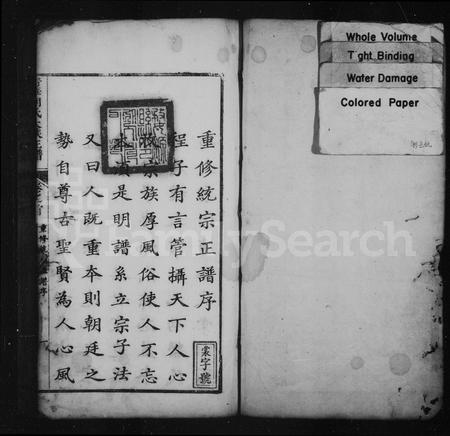 Whole Volume
Tight Binding
Water Damage
Colored Paper
重修統宗正譜序
程子有言管攝天下人心
收宗族厚風俗使人不忘
本須是明譜系立宗子法
又曰人既重本則朝廷之
勢自尊古聖賢為人心風
裳字號
FamilySearch